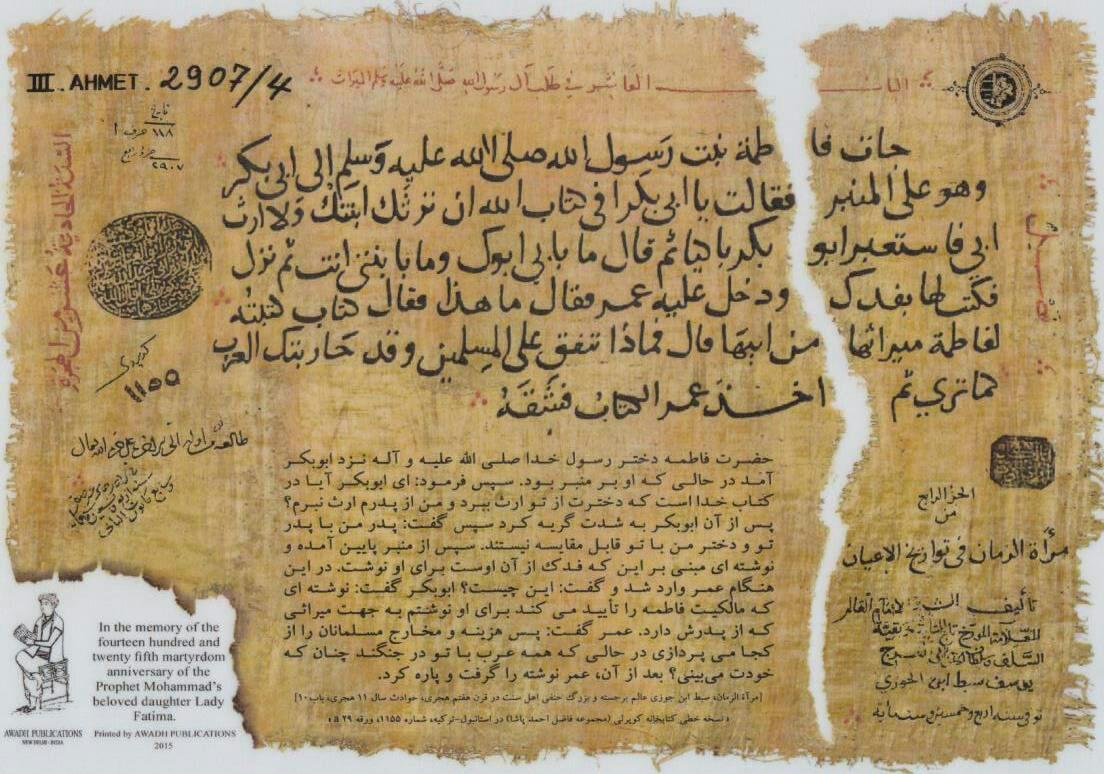 III. AHMET. 2907/4
جات فاطمة بنت رسول الله صلى الله عليه وسلم الى ابى بكر
وهو على المنبر فقالت يا ابى بكر افى كتاب الله ان ترثك ابنتك ولا ارث
ابى فاستعبر ابو بكر باكيا ثم قال ما بابى ابوك وما بابنتى انت ثم نزل
فكتب لها بفدك ودخل عليه عمر فقال ما هذا فقال كتاب كتبته
لفاطمة ميراثها من ابيها قال فماذا تنفق على المسلمين وقد حاربتك العرب
كما ترى ثم اخذ عمر الكتاب فشقه
السنة الحادية عشر من الهجرة
١١٥٥
حضرت فاطمه دختر رسول خدا صلی الله علیه و آله نزد ابوبکر
آمد در حالی که او بر منبر بود. سپس فرمود: ای ابوبکر آیا در
کتاب خدا است که دخترت از تو ارث ببرد و من از پدرم ارث نبرم؟
پس از آن ابوبکر به شدت گریه کرد سپس گفت: پدر من با پدر
تو و دختر من با تو قابل مقایسه نیستند. سپس از منبر پایین آمده و
نوشته ای مبنی بر این که فدک از آن اوست برای او نوشت. در این
هنگام عمر وارد شد و گفت: این چیست؟ ابوبکر گفت: نوشته ای
که مالکیت فاطمه را تأیید می کند برای او نوشتم به جهت میراثی
که از پدرش دارد. عمر گفت: پس هزینه و مخارج مسلمانان را از
کجا می پردازی در حالی که همه عرب با تو در جنگند چنان که
خودت می‌بینی؟ بعد از آن، عمر نوشته را گرفت و پاره کرد.
[مرآة الزمان، سبط ابن جوزی عالم برجسته و بزرگ حنفی اهل سنت در قرن هفتم هجری، حوادث سال ۱۱ هجری، باب ۱۰]
«نسخه خطی کتابخانه کوپرلی (مجموعه فاضل احمد پاشا) در استانبول-ترکیه، شماره ۱۱۵۵، ورقه ۲۹ a»
الجزء الرابع
من
مرآة الزمان فى تواريخ الاعيان
يوسف سبط ابن الجوزى
In the memory of the
fourteen hundred and
twenty fifth martyrdom
anniversary of the
Prophet Mohammad's
beloved daughter Lady
Fatima.
Printed by AWADH PUBLICATIONS
2015
AWADH PUBLICATIONS
NEW DELHI - INDIA